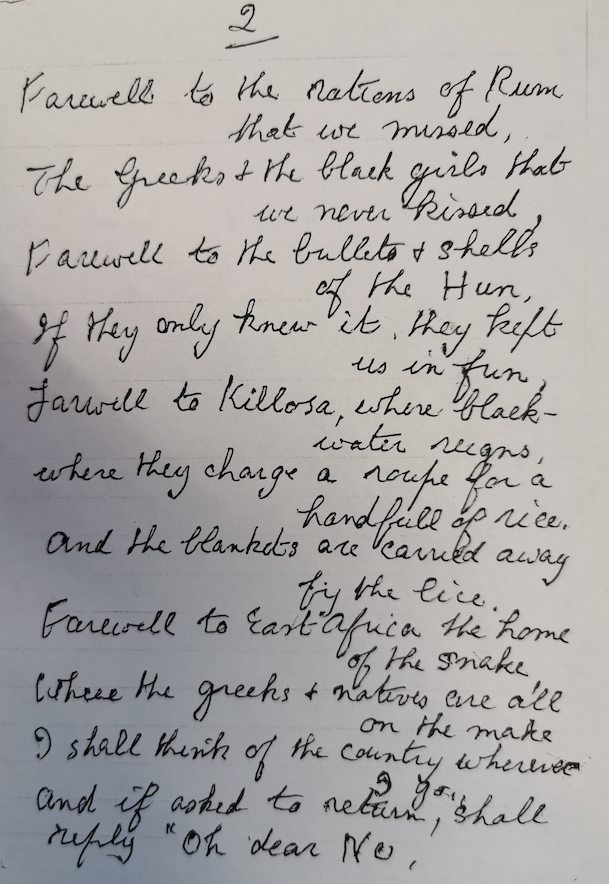 2
Farewell to the rations of Rum
that we missed,
The Greeks & the black girls that
we never kissed,
Farewell to the bullets & shells
of the Hun,
If they only knew it, they kept
us in fun,
Farwell to Killosa, where black-
water reigns,
where they charge a roupe for a
handfull of rice.
and the blankets are carried away
by the lice.
Farewell to East Africa the home
of the snake
Where the greeks & natives are all
on the make
I shall think of the country wherever
I go,
and if asked to return, shall
reply "Oh dear No,